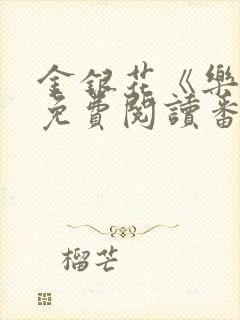 金銀花《樂
免費閱讀番
榴芒